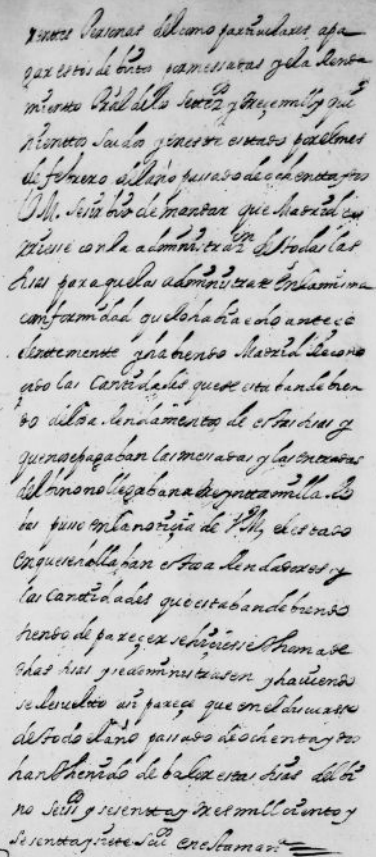 rentes Personas del como particulares apa
gar estos de bino por messadas y ela Renda
miento Pral de los setez.os y treçe mill y qui
nientos Ducados y en este estado por el mes
de febrero del año passado de ochenta y tres
V.M. se sirbio de mandar que Madrid co
rriesse con la administraz.on de todas las
sisas para que las administrase en la misma
conformidad que lo habia echo antece
dentemente y habiendo Madrid Recono
cido las Cantidades que se estaban debien
do del Rendamiento de estas sisas y
que no se pagaban las mesadas y las entradas
del bino no llegaban a treynta mill a Ro
bas puso en la notiçia de V.M. el estado
en que se hallaban estos a Rendadores y
las Cantidades que estaban debiendo
siendo de pareçer se hiçiesse thoma de
dhas sisas y se administrasen y haviendo
se Resuelto assi pareçe que en el discurso
de todo el año passado de ochenta y tres
han thenido de balor estas sisas del bi
no seisz.os y sesenta y tres mill ciento y
sesenta y siete Du.os en esta man.a